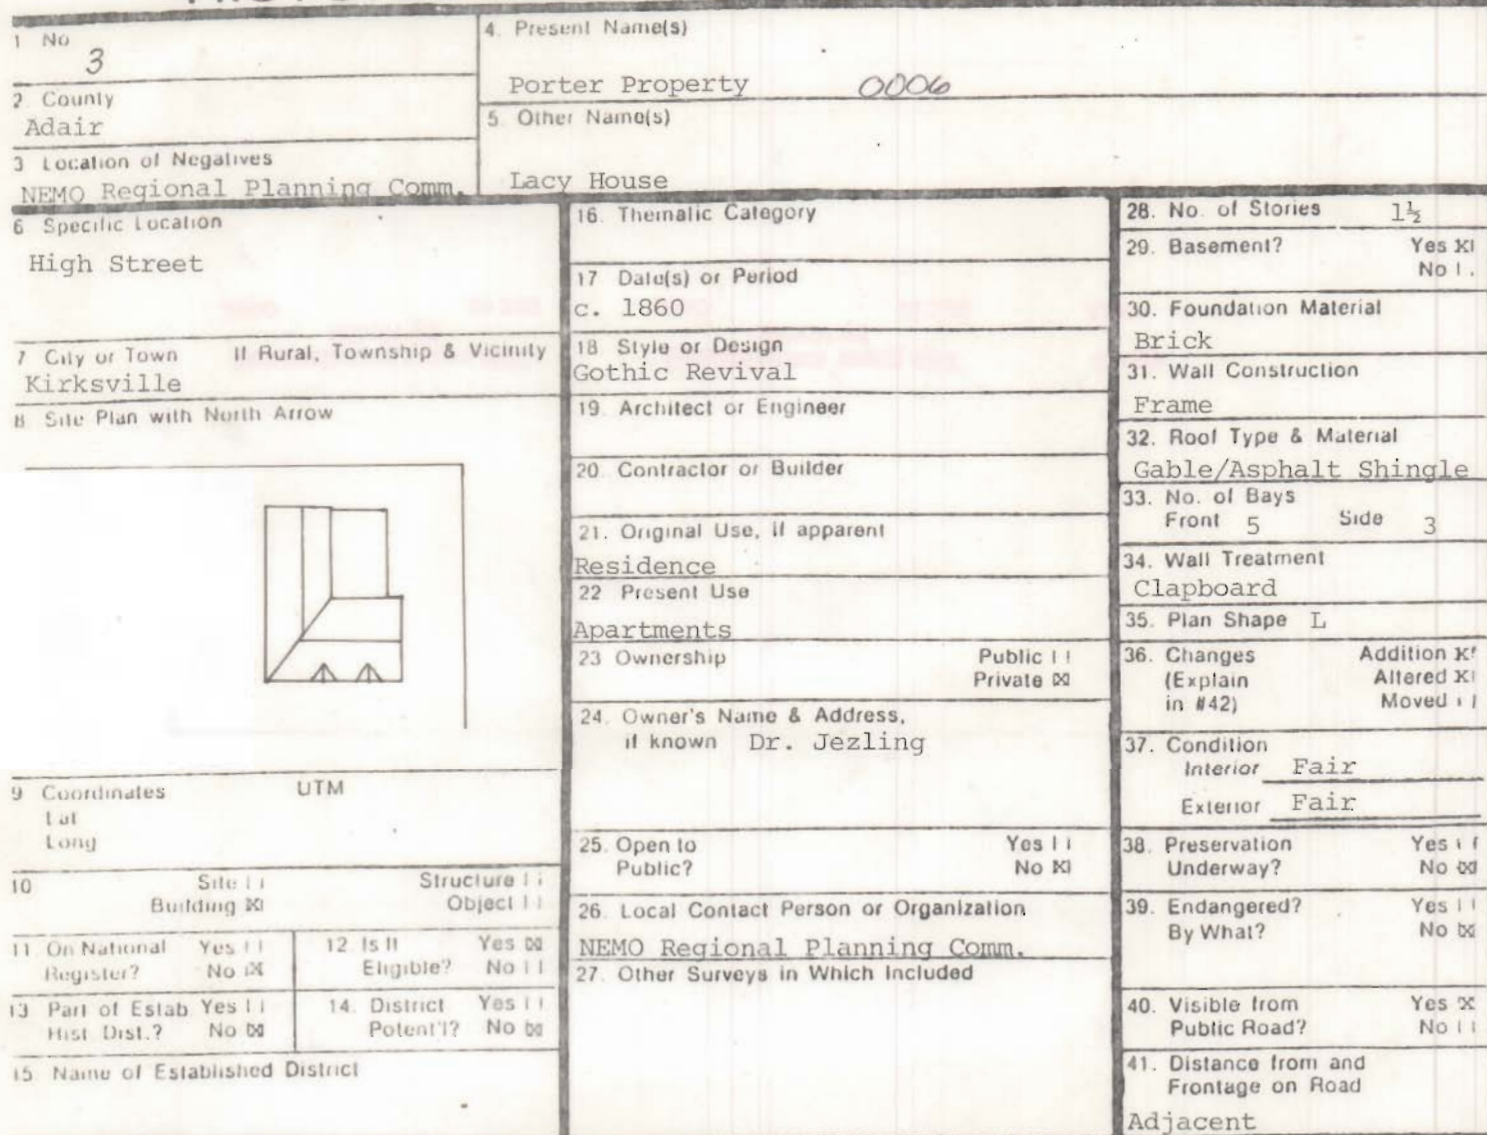 1 No
3
2. County
Adair
3 Location of Negatives
NEMO Regional Planning Comm.
4. Present Name(s)
Porter Property 0006
5 Other Name(s)
Lacy House
6 Specific Location
High Street
7 City or Town If Rural, Township & Vicinity
Kirksville
8 Site Plan with North Arrow
9 Coordinates UTM
Lat
Long
10 Site [ ] Structure [ ]
Building [X] Object [ ]
11 On National Register? Yes [ ] No [X]
12. Is It Eligible? Yes [X] No [ ]
13 Part of Estab Hist. Dist.? Yes [ ] No [X]
14. District Potent'l? Yes [ ] No [X]
15. Name of Established District
16. Thematic Category
17 Date(s) or Period
c. 1860
18 Style or Design
Gothic Revival
19. Architect or Engineer
20. Contractor or Builder
21. Original Use, if apparent
Residence
22 Present Use
Apartments
23 Ownership Public [ ]
Private [X]
24. Owner's Name & Address,
if known Dr. Jezling
25. Open to Yes [ ]
Public? No [X]
26. Local Contact Person or Organization
NEMO Regional Planning Comm.
27. Other Surveys in Which Included
28. No. of Stories 1½
29. Basement? Yes [X]
No [ ]
30. Foundation Material
Brick
31. Wall Construction
Frame
32. Roof Type & Material
Gable/Asphalt Shingle
33. No. of Bays
Front 5 Side 3
34. Wall Treatment
Clapboard
35. Plan Shape L
36. Changes Addition [X]
(Explain Altered [X]
in #42) Moved [ ]
37. Condition
Interior Fair
Exterior Fair
38. Preservation Yes [ ]
Underway? No [X]
39. Endangered? Yes [ ]
By What? No [X]
40. Visible from Yes [X]
Public Road? No [ ]
41. Distance from and
Frontage on Road
Adjacent